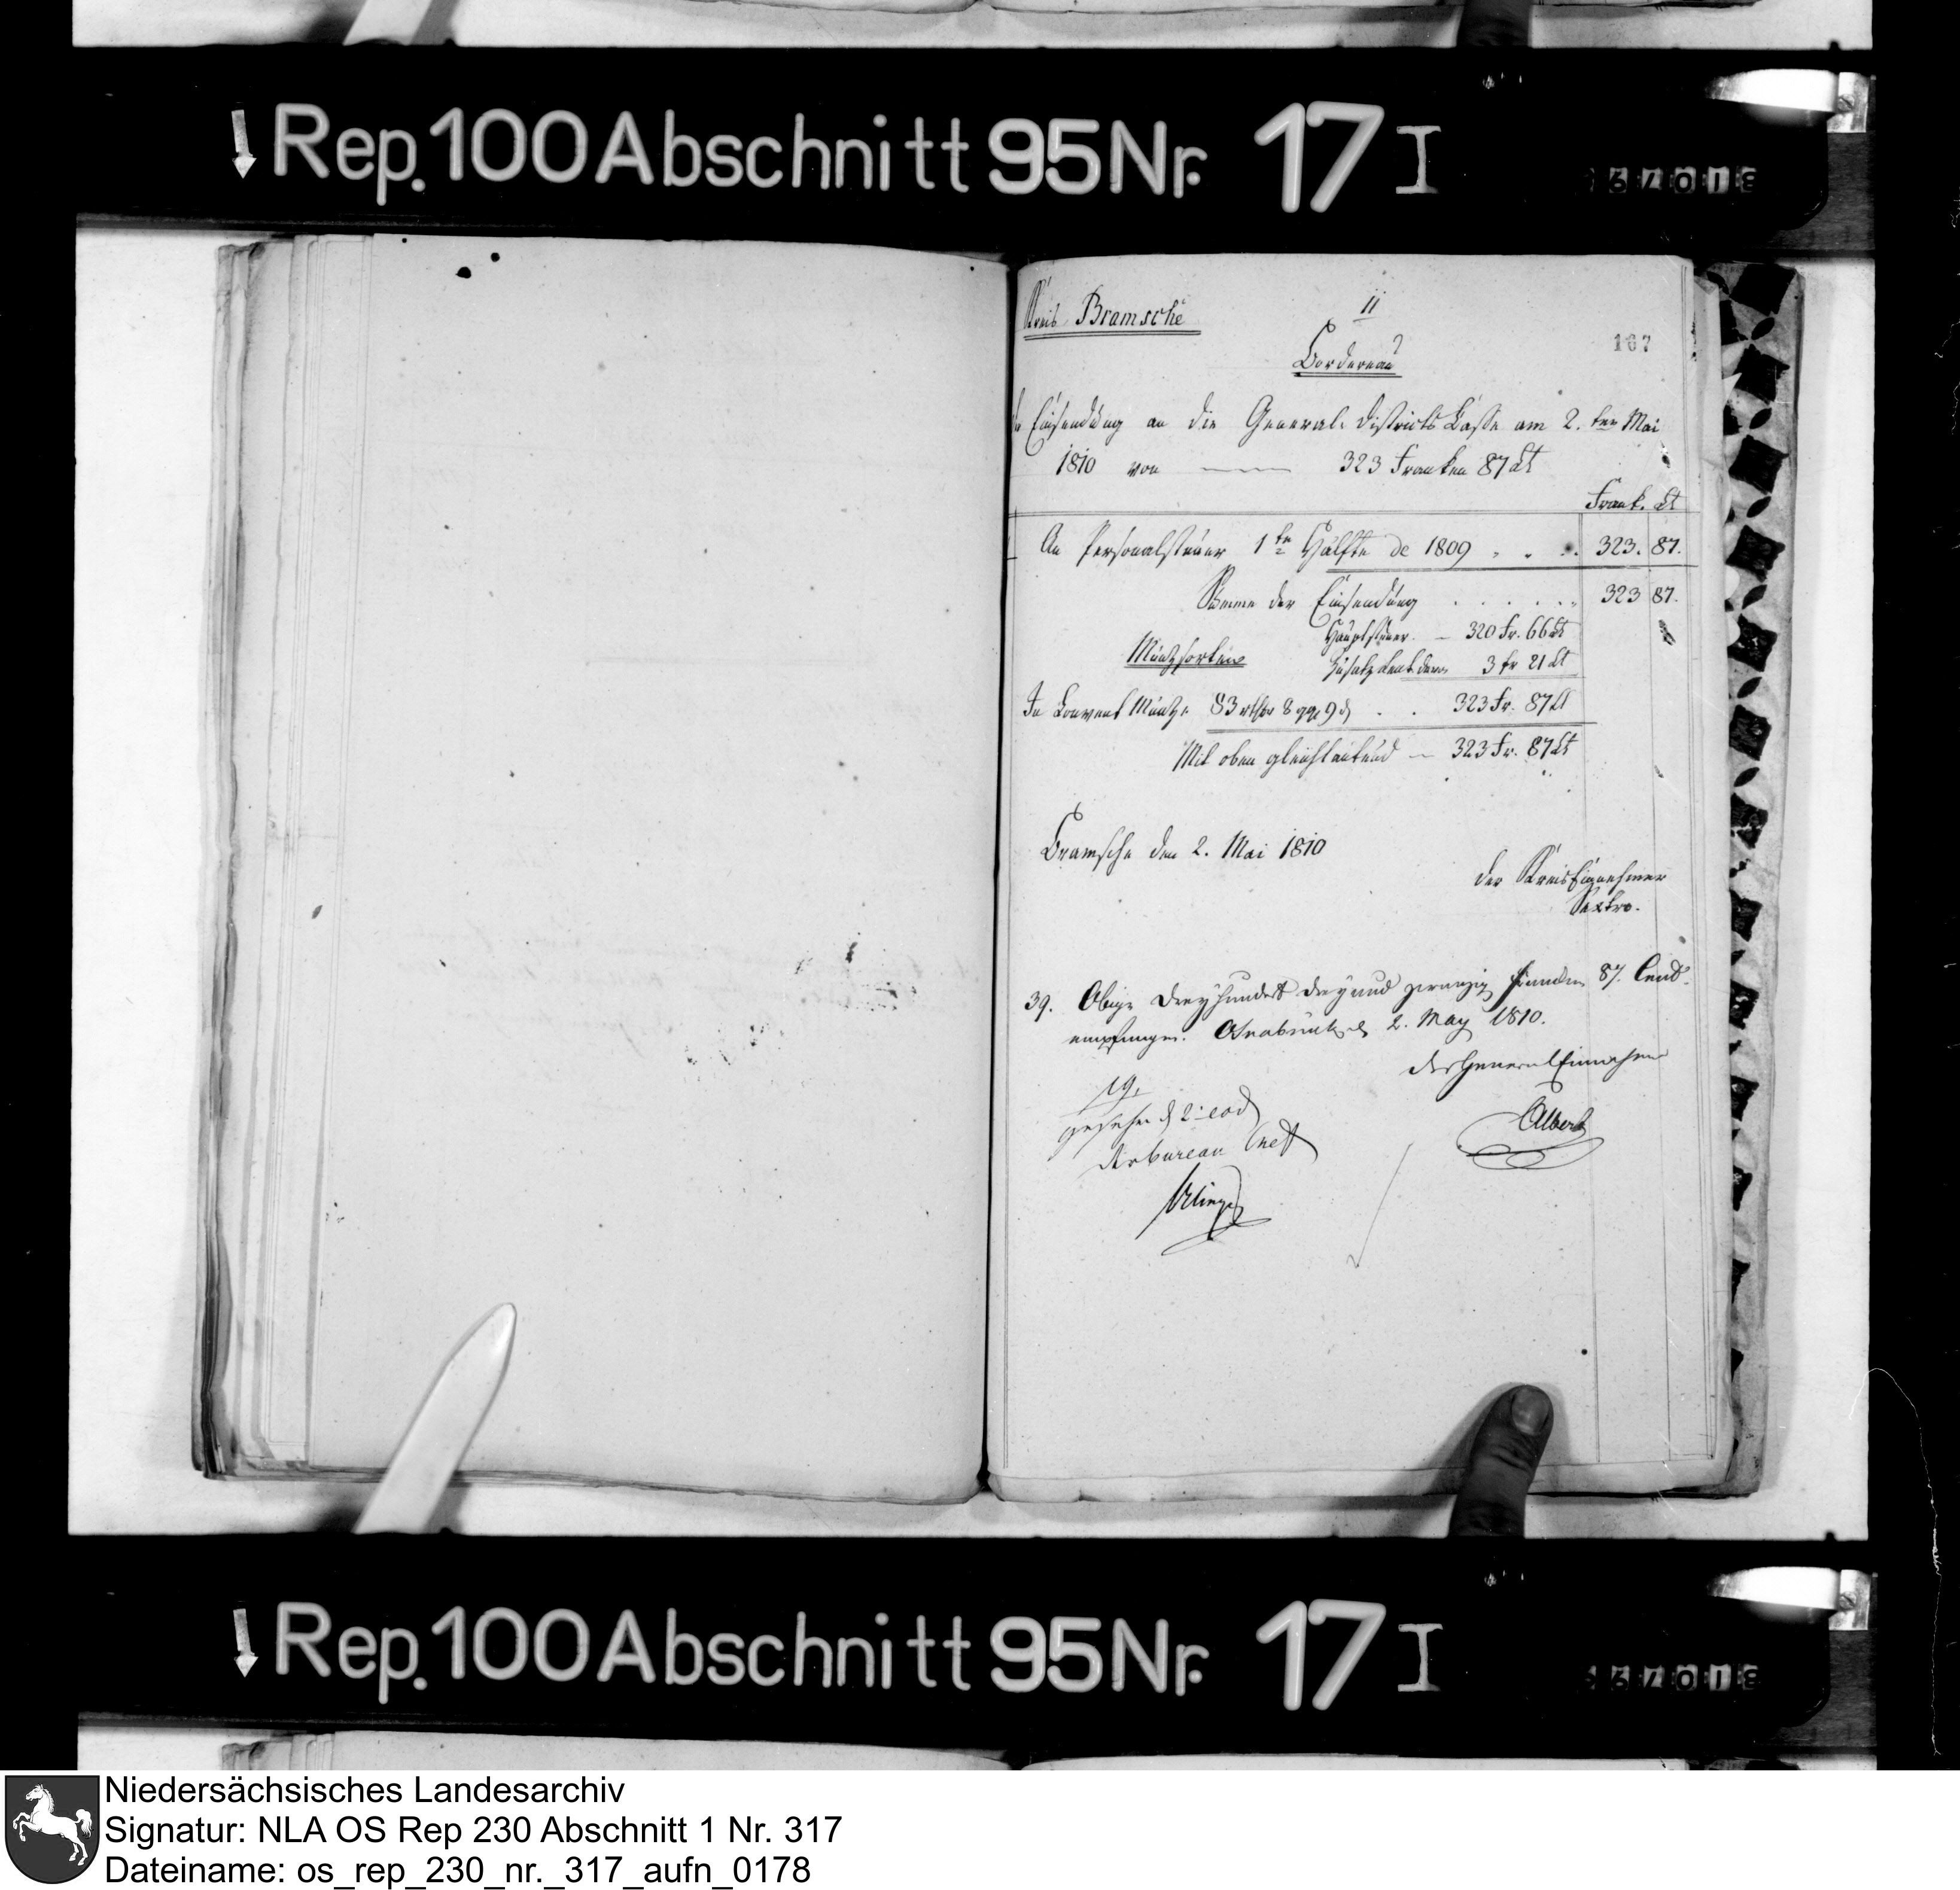 Rep. 100 Abschnitt 95 Nr. 17 I
Kreis Bramsche
11
167
Bordereau
Einsendung an die General-Districts Casse am 2. ten Mai
1810 von 323 Franken 87 Ct
Frank. Ct
An Personalsteuer 1te Hälfte de 1809 . . . 323. 87.
Summe der Einsendung . . . . . . 323 87.
Hauptsteuer. — 320 Fr. 66 Ct
Müntzsorten
3 fr 21 Ct
In Convent Müntze 83 rthlr 8 ggr 9 d . . 323 Fr. 87 Ct
Mit oben gleichlautend — 323 Fr. 87 Ct
Bramsche den 2. Mai 1810
der KreisEinnehmer
Sextro.
39. Obige dreyhundert dreyund zwanzig Franken 87. Cent.
empfangen. Osnabrück d 2. May 1810.
der General Einnehmer
Albers
19.
gesehen d 2. eod
der bureau Chef
Rep. 100 Abschnitt 95 Nr. 17 I
Niedersächsisches Landesarchiv
Signatur: NLA OS Rep 230 Abschnitt 1 Nr. 317
Dateiname: os_rep_230_nr._317_aufn_0178